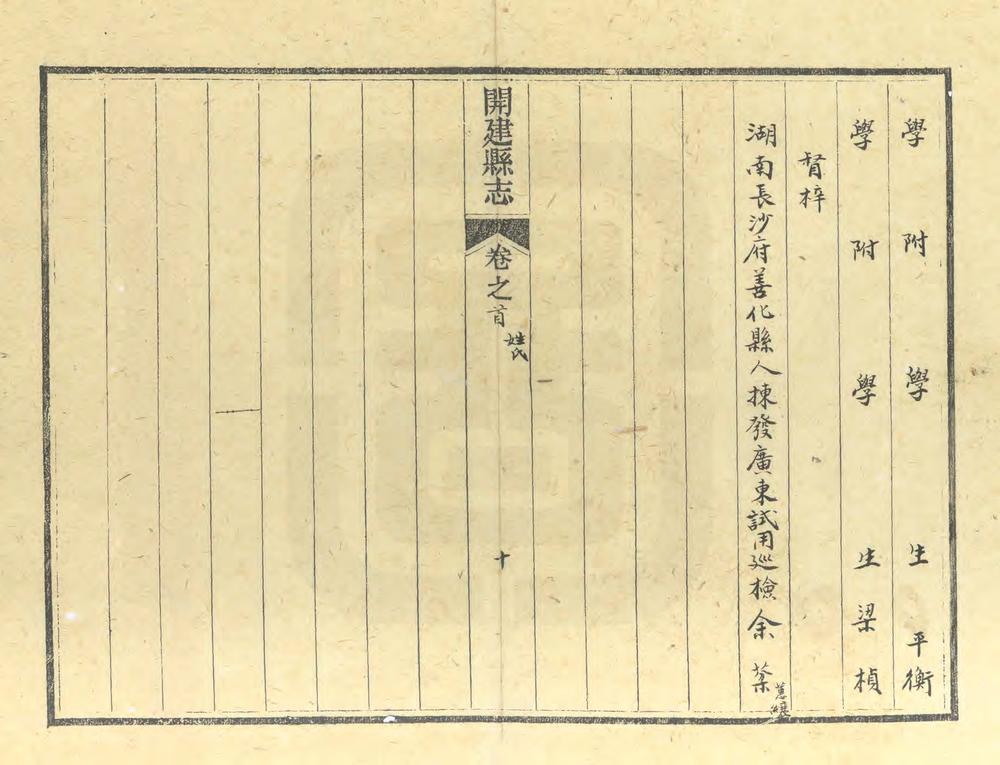 學附學生平衡
學附學生梁楨
督梓
湖南長沙府善化縣人揀發廣東試用巡檢余棻
開建縣志
卷之首
姓氏
十